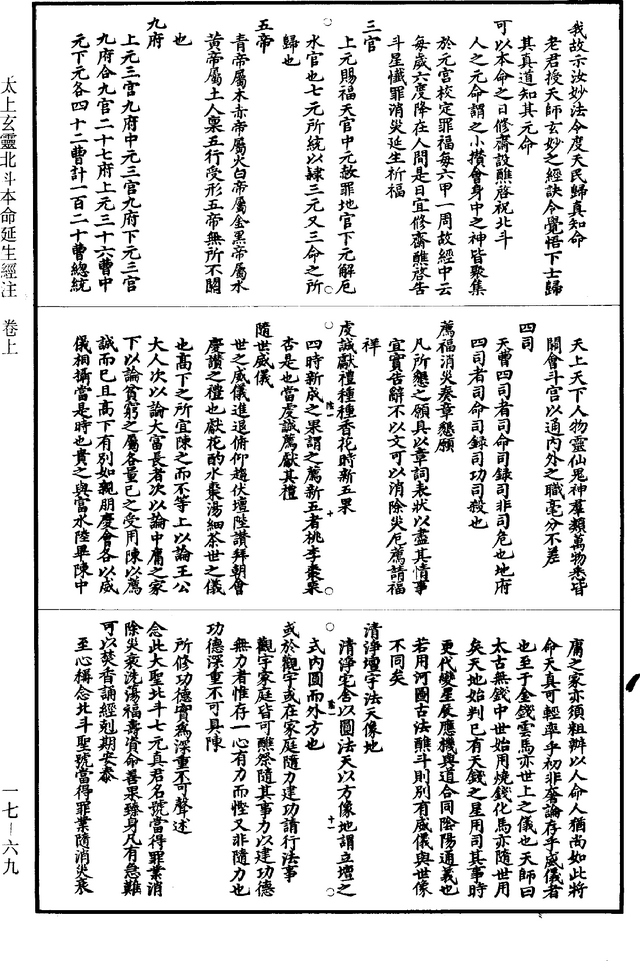 太上玄靈北斗本命延生經注　卷上
一七—六九
我故示汝妙法令度天民歸真知命
老君授天師玄妙之經訣令覺悟下士歸
其真道知其元命
可以本命之日修齋設醮啓祝北斗
人之元命謂之小攢會身中之神皆聚集
於元宮校定罪福每六甲一周故經中云
每歲六度降在人間是日宜修齋醮啓告
斗星懺罪消災延生祈福
三官
上元賜福天官中元赦罪地官下元解厄
水官也七元所統以隸三元又三命之所
歸也
五帝
青帝屬木赤帝屬火白帝屬金黑帝屬水
黃帝屬土人稟五行受形五帝無所不關
也
九府
上元三官九府中元三官九府下元三官
九府合九官二十七府上元三十六曹中
元下元各四十二曹計一百二十曹總統
天上天下人物靈仙鬼神羣類萬物悉皆
關會斗宮以通內外之職毫分不差
四司
天曹四司者司命司錄司非司危也地府
四司者司命司錄司功司殺也
薦福消災奏章懇願
凡所懇之願具以章詞表狀以盡其情事
宜實告辭不以文可以消除災厄薦請福
祥
虔誠獻禮種種香花時新五果
四時新成之果謂之薦新五者桃李棗栗
杏是也當虔誠薦獻其禮
隨世威儀
世之威儀進退俯仰趨伏壇陛讚拜朝會
慶讚之禮也獻花酌水棗湯細茶世之儀
也高下之所宜陳之而不等上以論王公
大人次以論大富長者次以論中庸之家
下以論貧窮之屬各量已之受用陳以薦
誠而已且高下有別如親朋慶會各以威
儀相攝當是時也貴之與富水陸畢陳中
庸之家亦須粗辦以人命人猶尚如此將
命天真可輕率乎初非奢論存乎威儀者
也至于金錢雲馬亦世上之儀也天師曰
太古無錢中世始用燒錢化馬亦隨世用
矣天地始判已有天錢之星用司其事時
更代變星辰應機與道合同陰陽通義也
若用河圖古法醮斗則別有威儀與世像
不同矣
清淨壇宇法天像地
清淨宅舍以圓法天以方像地謂立壇之
式內圓而外方也
或於觀宇或在家庭隨力建功請行法事
觀宇家庭皆可醮祭隨其事力以建功德
無力者惟存一心有力而慳又非隨力也
功德深重不可具陳
所修功德實爲深重不可聲述
念此大聖北斗七元真君名號當得罪業消
除災衰洗蕩福壽資命善果臻身凡有急難
可以焚香誦經剋期安泰
至心稱念北斗聖號當得罪業隨消災衰